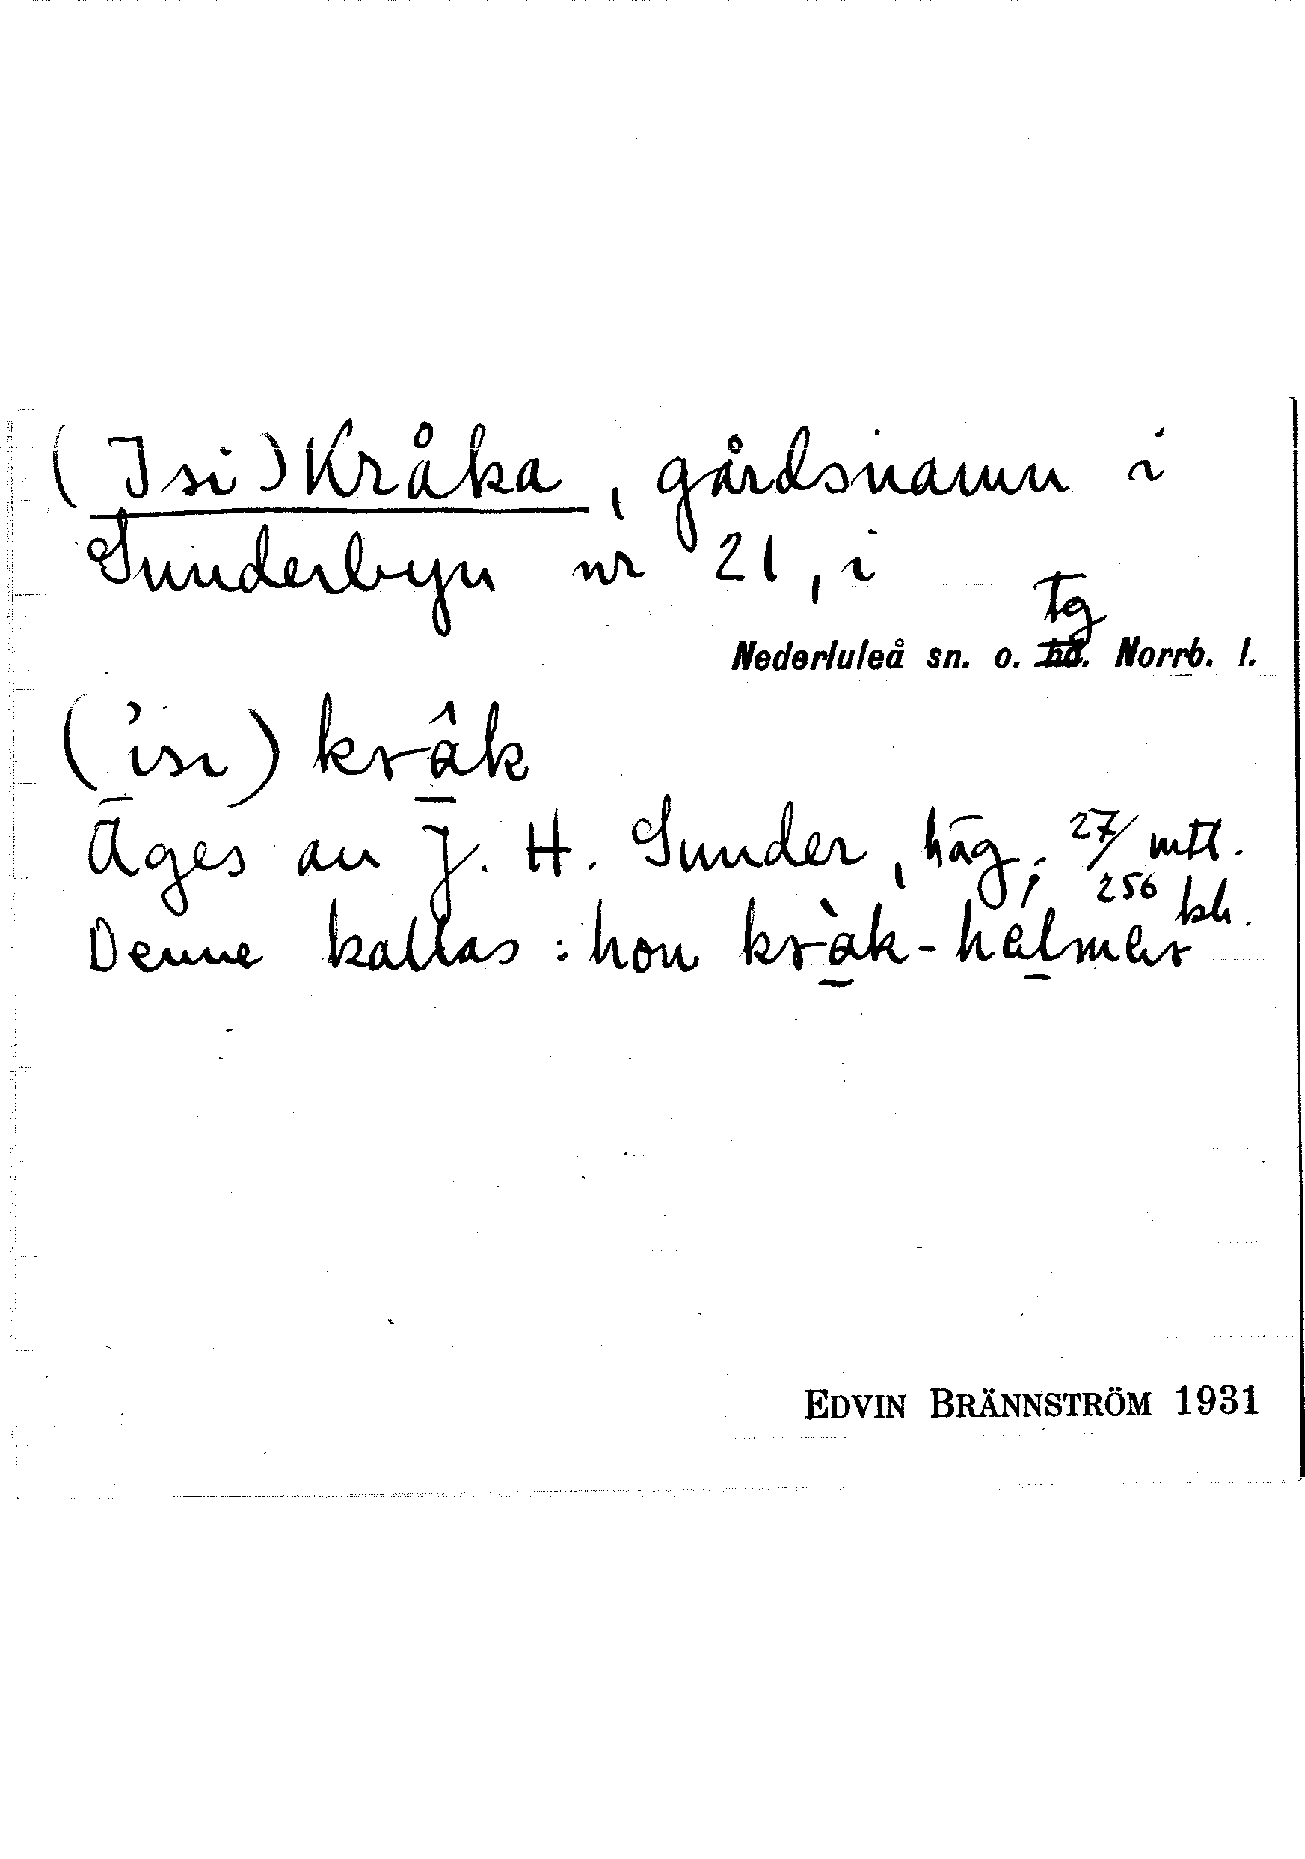 (Isi) Kråka, gårdsnamn i
Sunderbyn nr 21, i
tg
Nederluleå sn. o. hd. Norrb. l.
('isı) krâk
Äges av J. H. Sunder, häg; 27/256 mtl.
kh.
Denne kallas: hon kràk-hélmer
EDVIN BRÄNNSTRÖM 1931